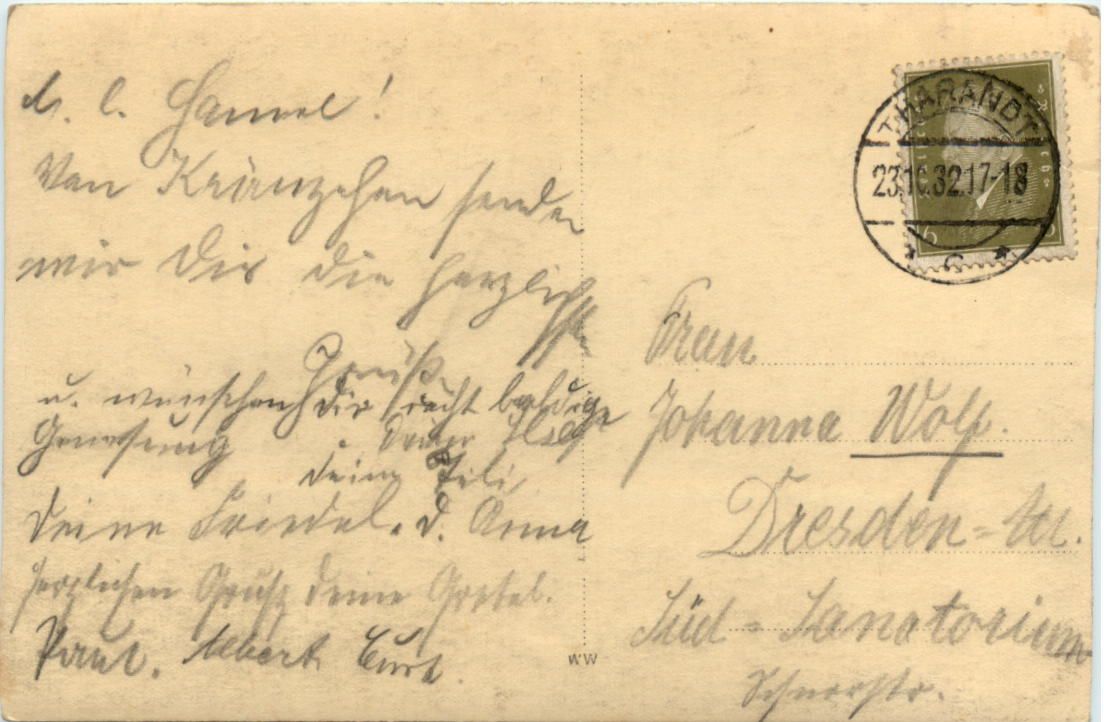 M. l. Hannel!
Vom Kränzchen senden
wir Dir die herzlichsten
Grüße
u. wünschen Dir recht baldige
Genesung. Deine Ilse
Deine Lili
Deine Friedel. D. Anna
herzlichen Gruß deine Gretel.
Paul. Albert Curt.
THARANDT
23.10.32.17-18
* c *
6 6
Frau
Johanna Wolf.
Dresden-
Süd-Sanatorium
Schnorrstr.
WW